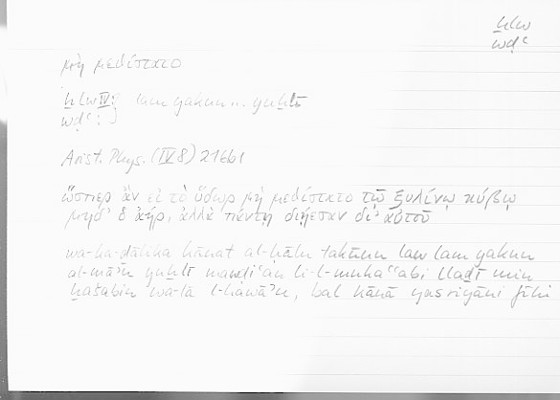 ḫlw
wḍʿ
μὴ μεθίστατο
ḫlw IV: } lam yakun … yuḫlī
wḍʿ: }
Arist. Phys. (IV 8) 216b1
ὥσπερ ἂν εἰ τὸ ὕδωρ μὴ μεθίστατο τῷ ξυλίνῳ κύβῳ
μηδ' ὁ ἀήρ, ἀλλὰ πάντῃ διῄεσαν δι' αὐτοῦ
wa-ka-ḏālika kānat al-ḥālu takūnu law lam yakun
al-māʾu yuḫlī mawḍiʿan li-l-mukaʿʿabi llaḏī min
ḫašabin wa-lā l-hawāʾu, bal kānā yasriyāni fīhi